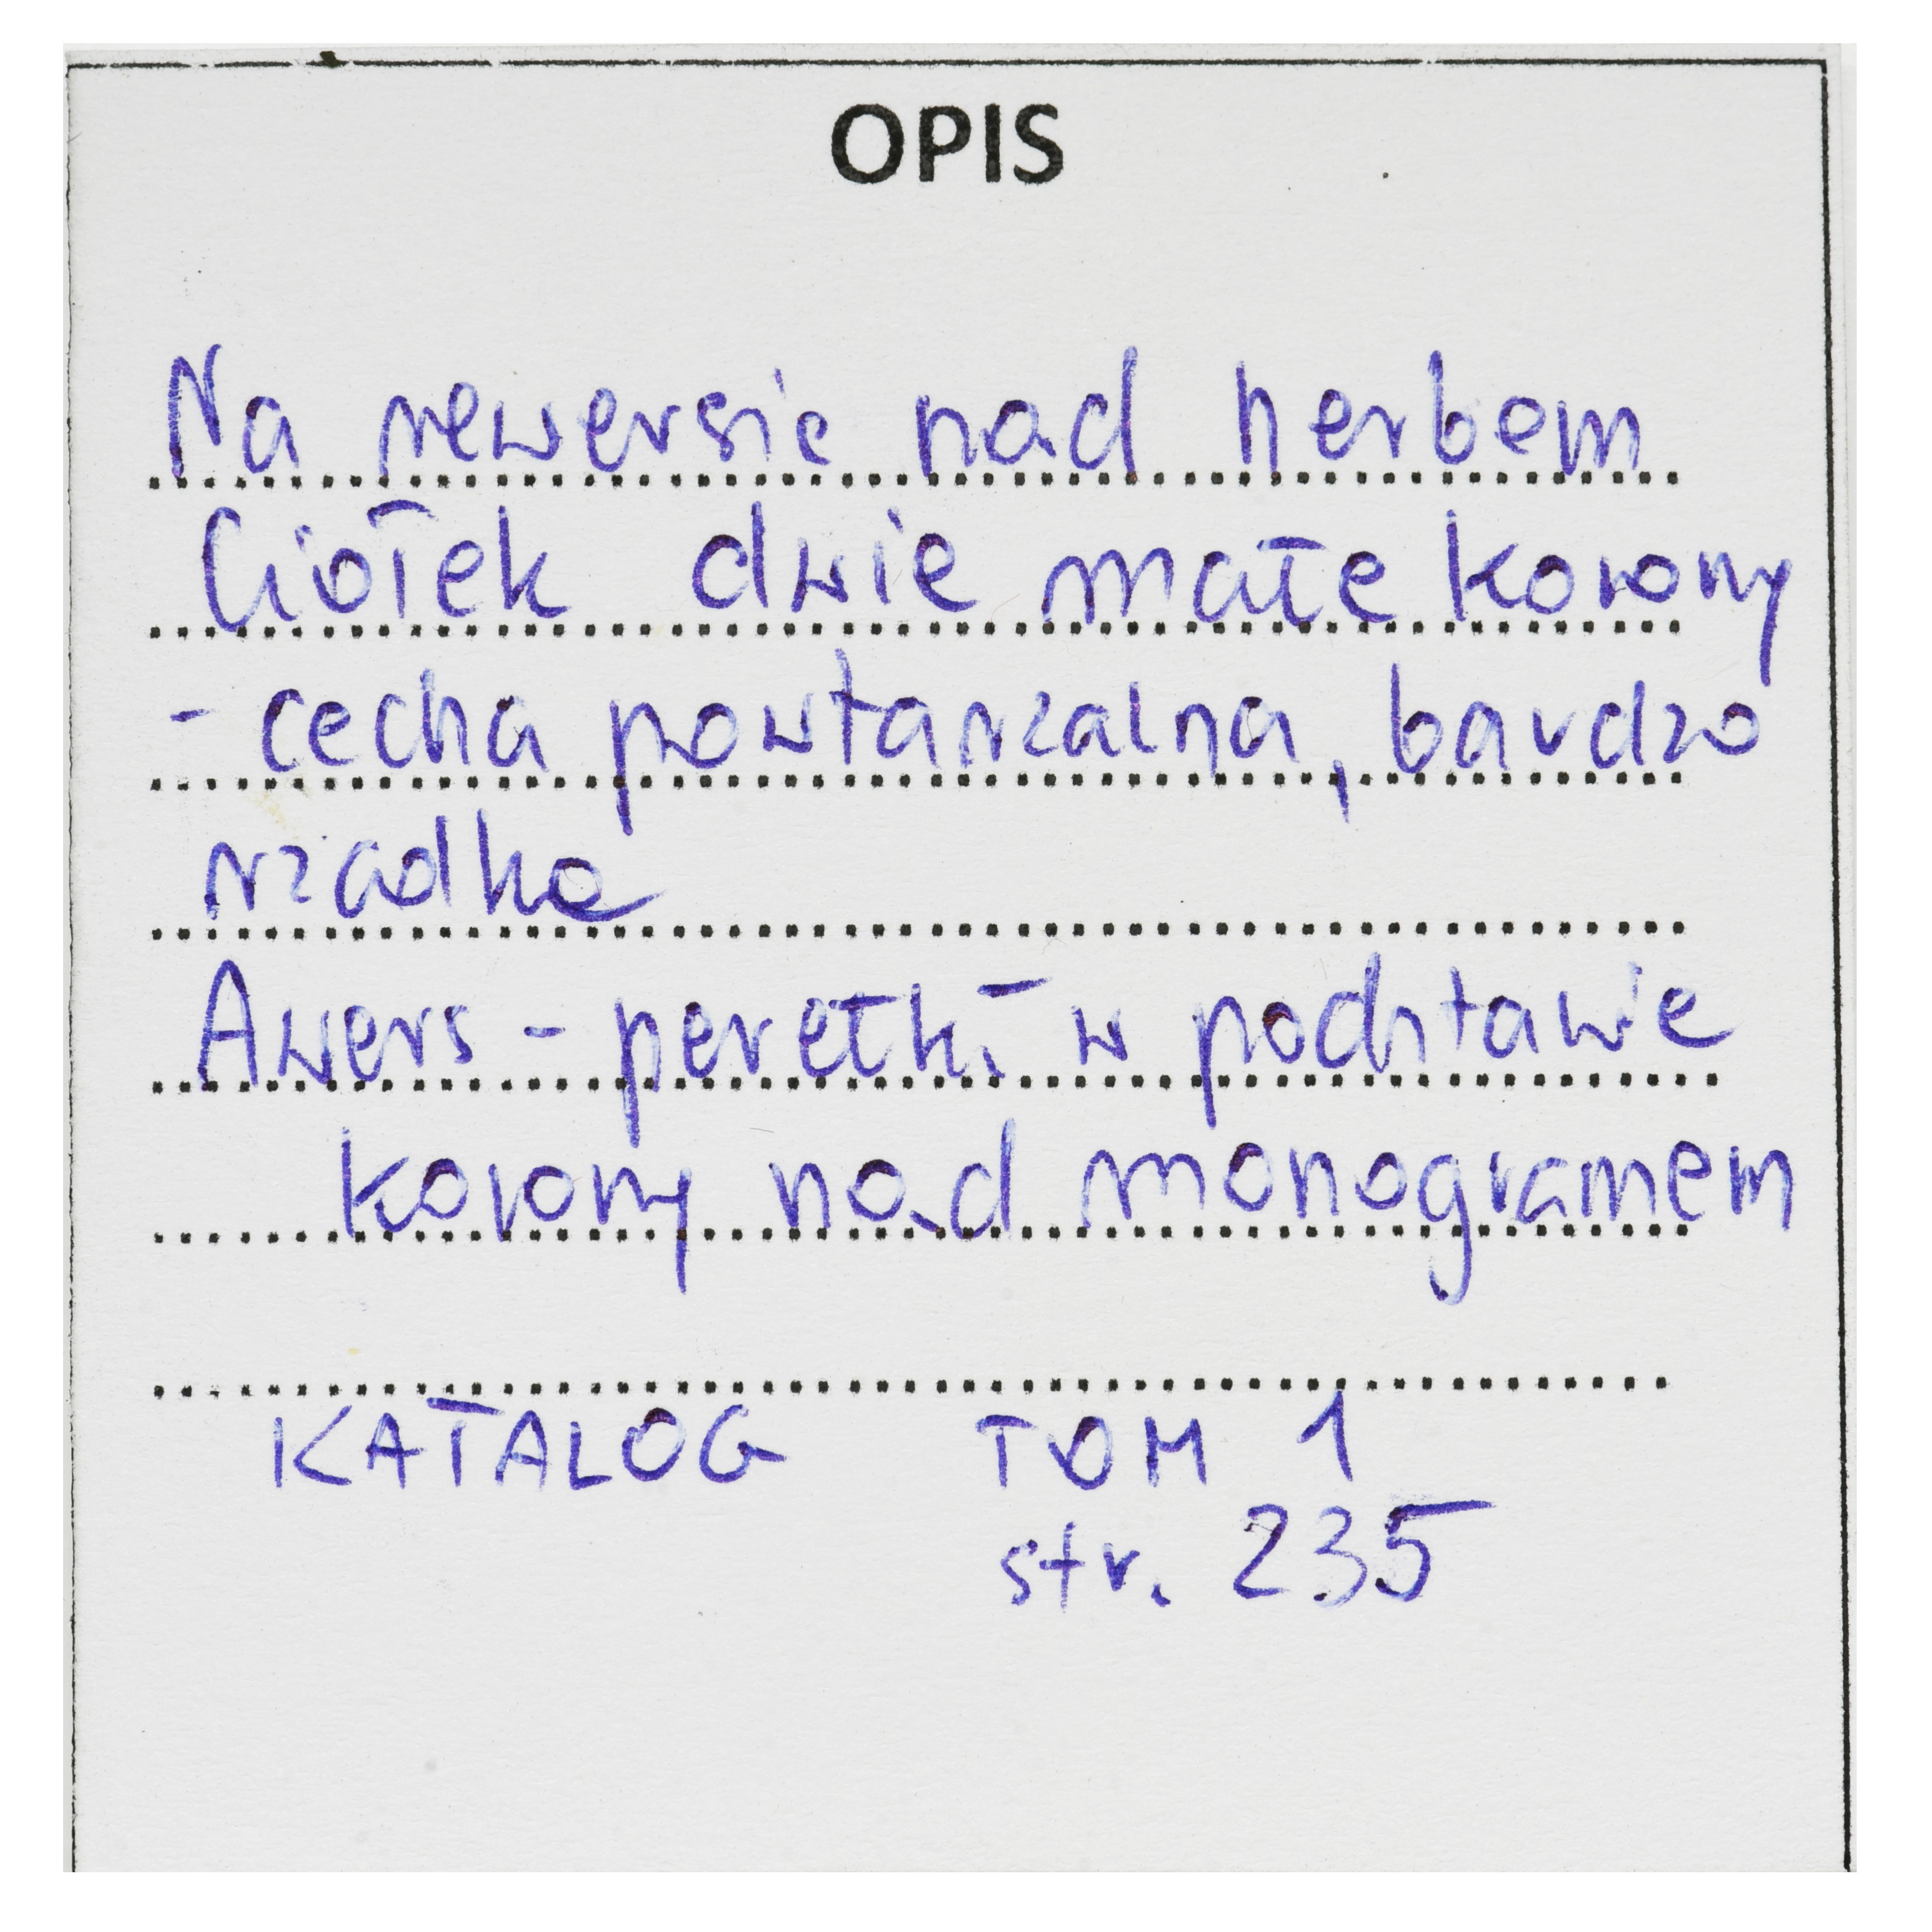 OPIS
Na rewersie nad herbem
Ciołek dwie małe korony
- cecha powtarzalna, bardzo
rzadka
Awers - perełki w podstawie
korony nad monogramem
KATALOG TOM 1
str. 235